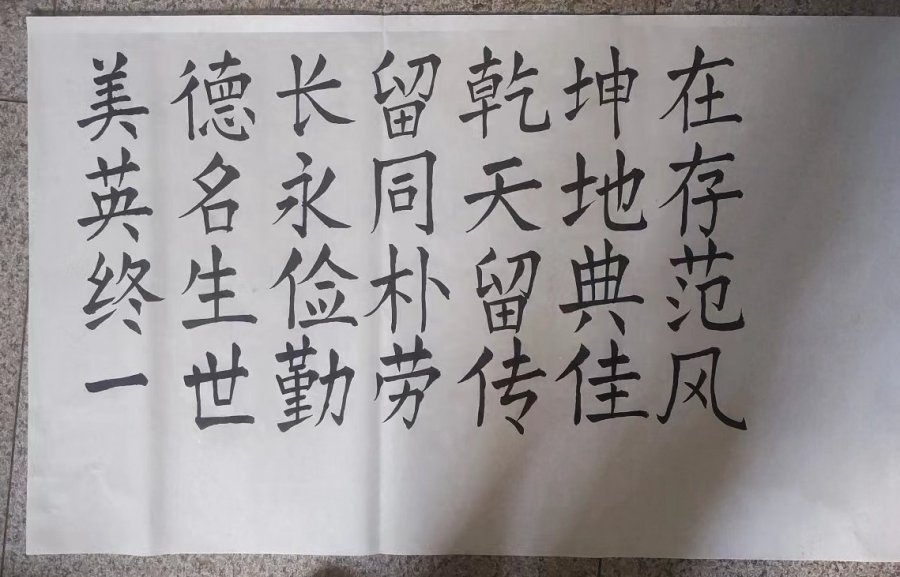 美德长留乾坤在
英名永同天地存
终生俭朴留典范
一世勤劳传佳风